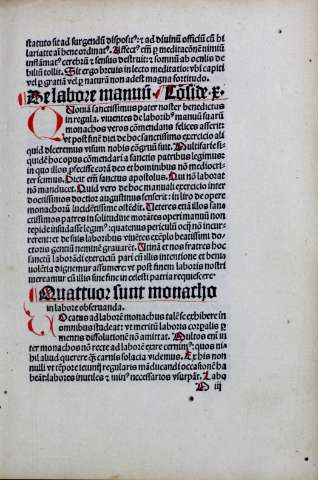 statuto sit ad surgendũ disposit⁹: ⁊ ad diuinũ officiũ cũ hi
laritateañ benꝛordinat⁹. Affect⁹ em̃ ⁊ meditacõne nimiũ
inflamat⁹ cerebrũ ⁊ sensus destruit: ⁊ somnũ ab oculis de
bilium tollit. Sit ergo breuis in lecto meditatio: vbi capitĩ
vel ꝑ gratiã vel ꝑ naturã non adest magna fortitudo.
De labore manuũ. Cõside. x.
Quoniã sanctissimus pater noster benedictus
in regula. viuentes de laboribꝰ manuũ suarũ
monachos veros cõmendans felices asserit:
vt post finẽ dict de hoc sanctissimo exercicio ali
quid diceremus visum nobis cõgruũ fuit. Multifarie si
quidẽ hoc opus cõmendari a sanctis patribus legimus:
in quo illos ꝓfecisse corã deo et hominibus nõ mediocri
ter scimus. Dicit em̃ sanctus apostolus. Qui nõ laborat
nõ manducet. Quid vero de hoc manuali exercicio inter
doctissimos doctior augustinus senserit: in libro de opere
monachorũ lucidẽtissime ostẽdit. Veteres etã illos san
ctissimos patres in solitudine morãtes operi manuũ non
tepide insudasse legim⁹: quatenus periculũ ocij nõ incur
rerent: et de suis laboribus viuẽtes exẽplo beatissimi do
ctoris gentiũ neminẽ grauarẽt. Vtinã et nos fratres hoc
sanctũ laborãdi exercicũ pari cũ illis intentione et beni
uolẽtia dignemur assumere: vt post finem laboris nostri
mereamur cũ illis sine fine in celesti patria requiescere
Quattuor sunt monacho
in labore obseruanda.
Uocatus ad laborẽ monachus talẽ se exhibere in
omnibus studeat: vt meritũ laboris corꝑalis ꝑ
mentis dissolutionẽ nõ amittat. Multos em̃ in
ter monachos nõ recte ad laborẽ exire cernim⁹: quos ni
hil aliud querere ꝗ̃ carnis solacia videmus. Ex his non
nulli vt tẽpore ieiunij regularis mãducandi occasionẽ ha
beãt: labores inutiles ⁊ min⁹ necessarios vsurpãt. Labo